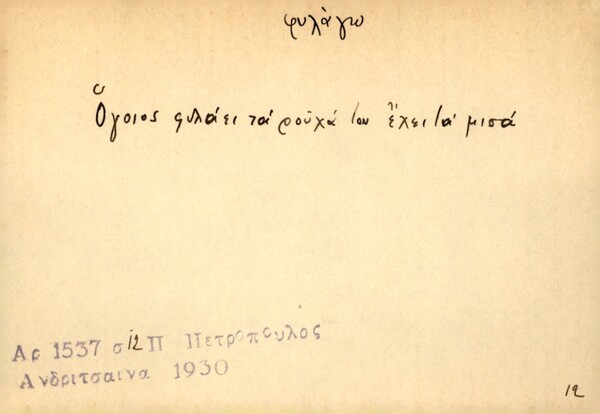 φυλάγω
Ὅγοιος φυλάει τά ροῦχά του ἔχει τά μισά
Αρ 1537 σ 12 Π Πετροπουλος
Ανδριτσαινα 1930
12